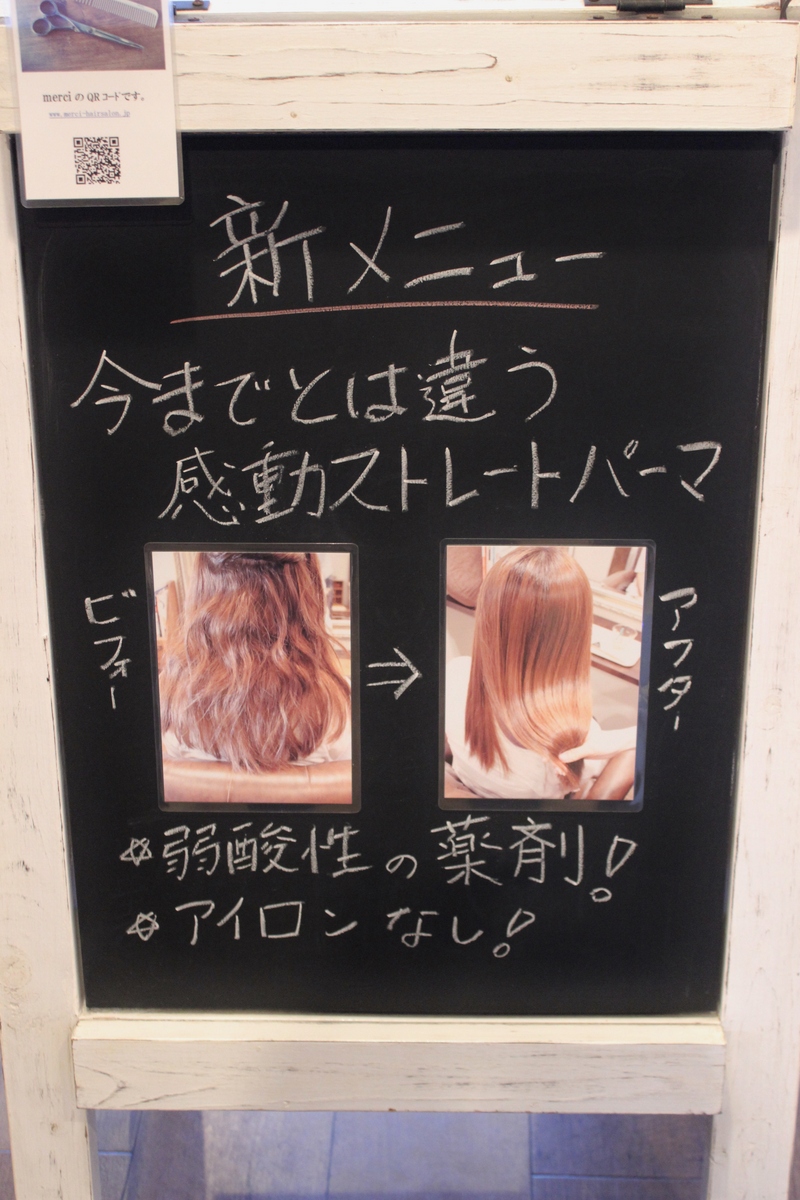 merciのQRコードです。
www.merci-hairsalon.jp
新メニュー
今までとは違う
感動ストレートパーマ
ビフォー
→
アフター
☆弱酸性の薬剤!
☆アイロンなし!